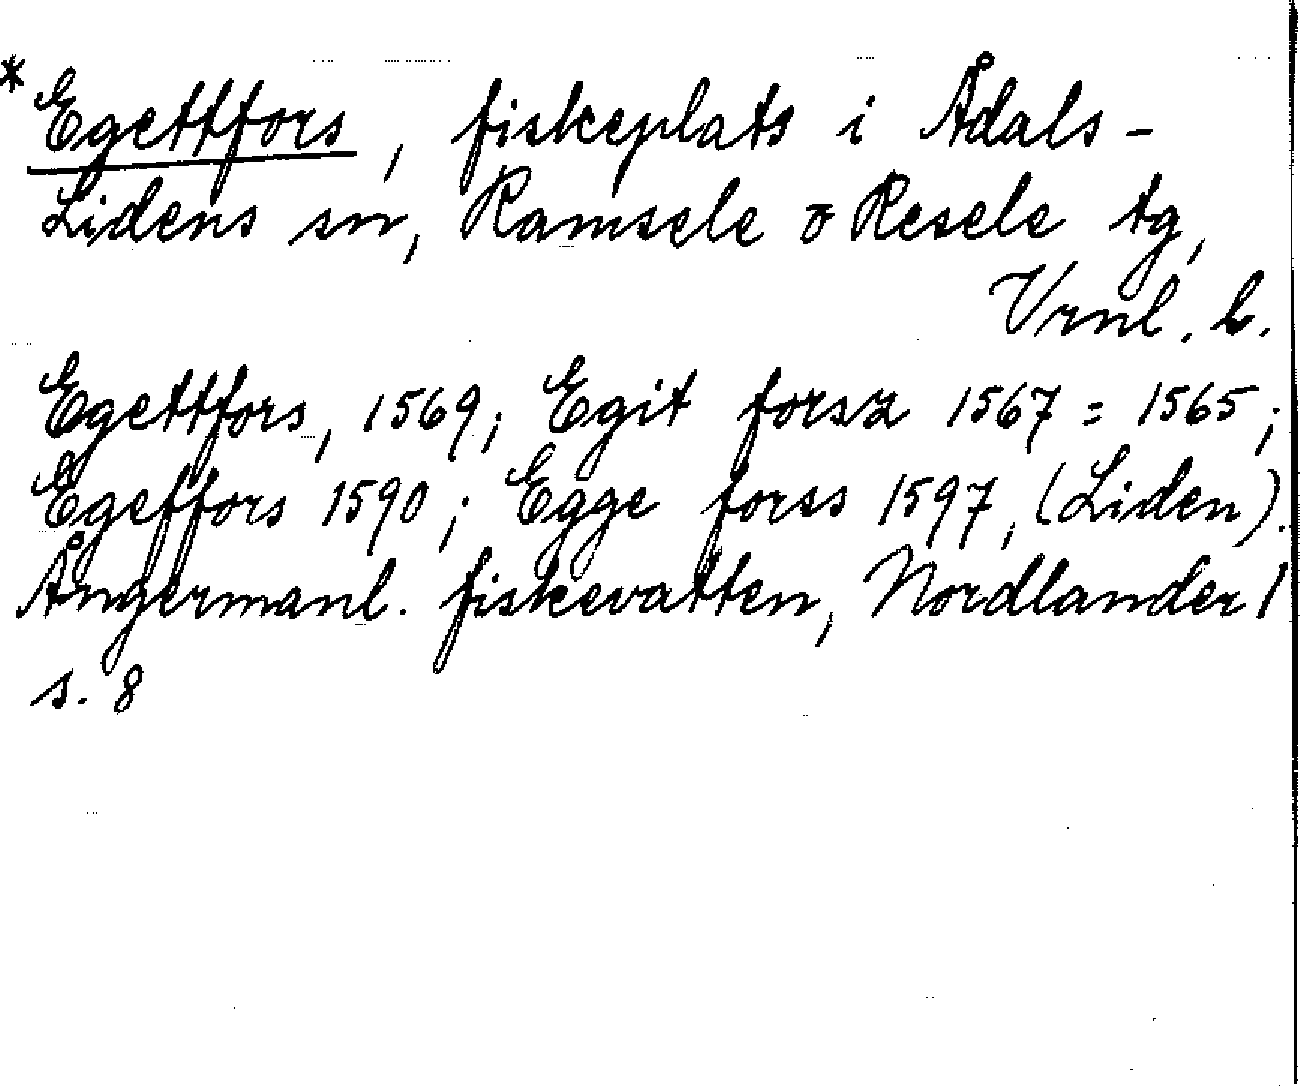 * Egettfors, fiskeplats i Ådals-
Lidens sn, Ramsele o Resele tg,
Vrnl. l.
Egettfors, 1569; Egit forsz 1567 = 1565;
Egeffors 1590; Egge forss 1597, (Liden).
Ångermanl. fiskevatten, Nordlander 1
s. 8